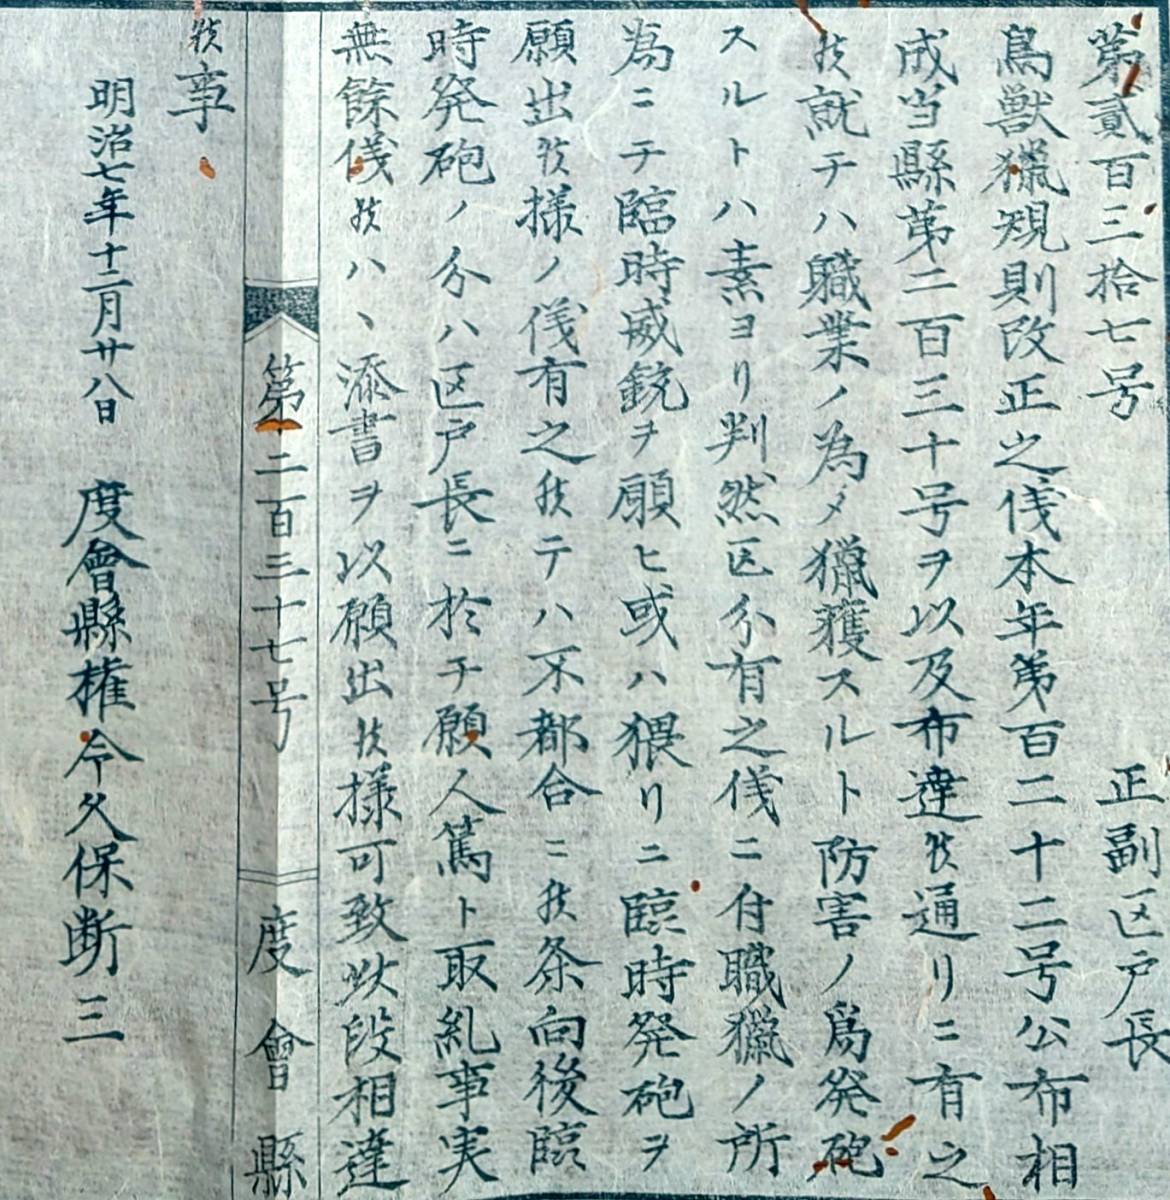 第貳百三拾七号　正副区戸長
鳥獣猟規則改正之儀本年第百二十二号公布相
成当縣第二百三十号ヲ以及布達候通リニ有之
候就テハ職業ノ為メ猟獲スルト防害ノ為発砲
スルトハ素ヨリ判然区分有之儀ニ付職猟ノ所
為ニテ臨時威銃ヲ願ヒ或ハ猥リニ臨時発砲ヲ
願出候様ノ儀有之候テハ不都合ニ候条向後臨
時発砲ノ分ハ区戸長ニ於テ願人篤ト取糺事実
無餘儀候ハヽ添書ヲ以願出候様可致此段相達
第二百三十七号　度會縣
候事
明治七年十二月廿八日　度會縣権令久保断三